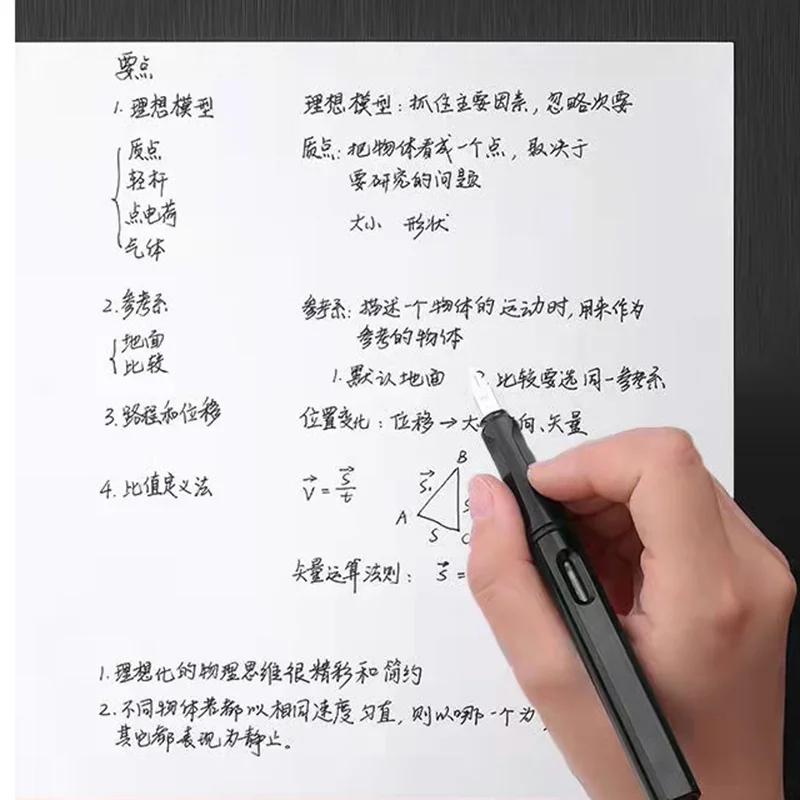 要点
1. 理想模型 理想模型: 抓住主要因素, 忽略次要
质点 质点: 把物体看成一个点, 取决于
轻杆 要研究的问题
点电荷 大小 形状
气体
2. 参考系 参考系: 描述一个物体的运动时, 用来作为
地面 参考的物体
比较 1. 默认地面 2. 比较要选同一参考系
3. 路程和位移 位置变化: 位移→大 向、矢量
4. 比值定义法 v⃗ = s⃗/t
B
s⃗.
A S C
矢量运算法则: s⃗ =
1. 理想化的物理思维很精彩和简约
2. 不同物体若都以相同速度匀直, 则以哪一个为
其它都表现为静止。